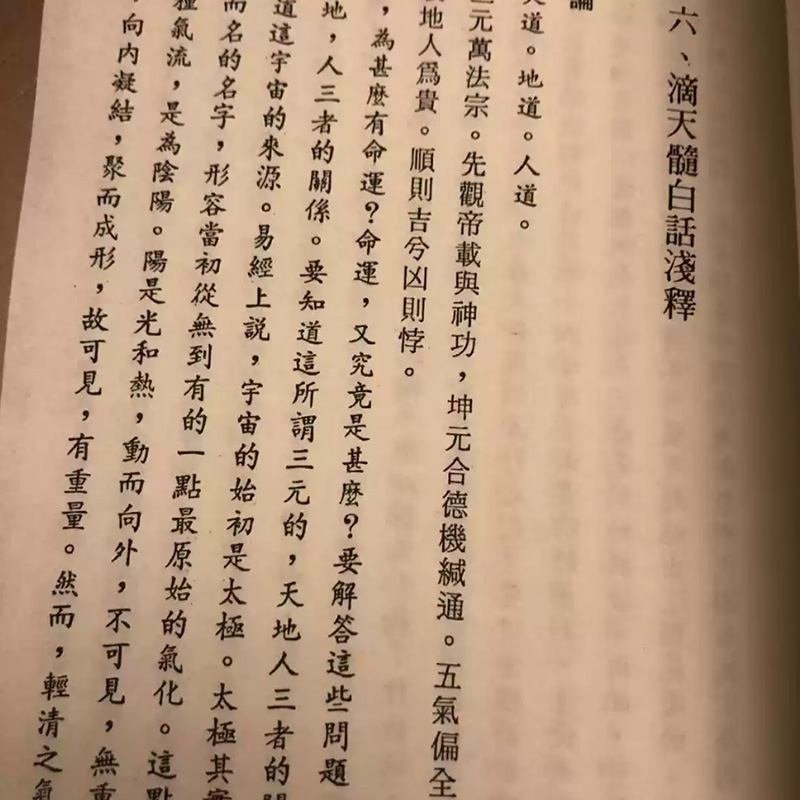 六、滴天髓白話淺釋
論
天道。地道。人道。
三元萬法宗。先觀帝載與神功,坤元合德機緘通。五氣偏全
地人為貴。順則吉兮凶則悖。
,為甚麼有命運?命運,又究竟是甚麼?要解答這些問題
地,人三者的關係。要知道這所謂三元的,天地人三者的關
道這宇宙的來源。易經上說,宇宙的始初是太極。太極其實
而名的名字,形容當初從無到有的一點最原始的氣化。這點
種氣流,是為陰陽。陽是光和熱,動而向外,不可見,無重
向內凝結,聚而成形,故可見,有重量。然而,輕清之氣